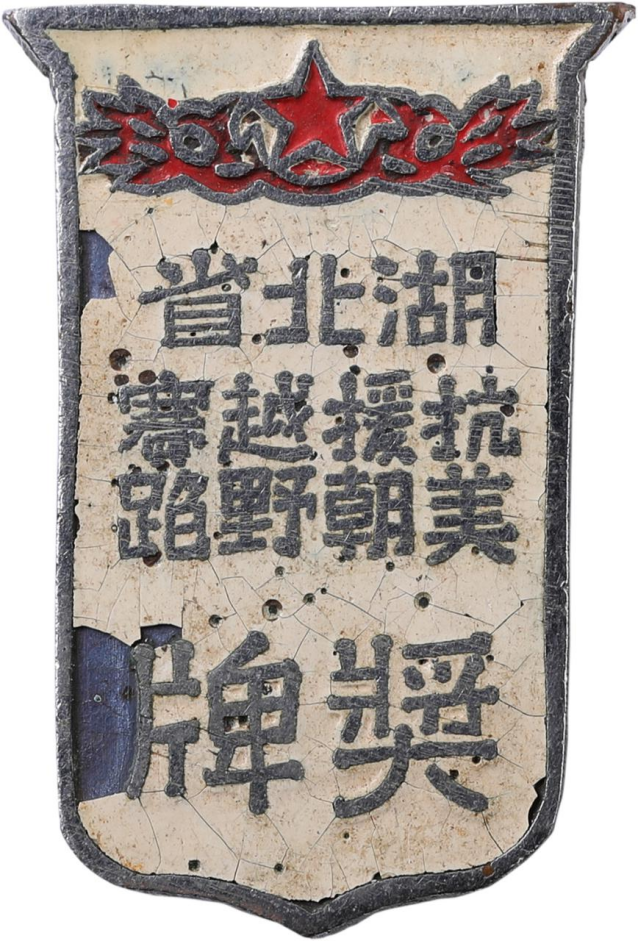 湖北省
抗美
援朝
越野
賽跑
奬牌